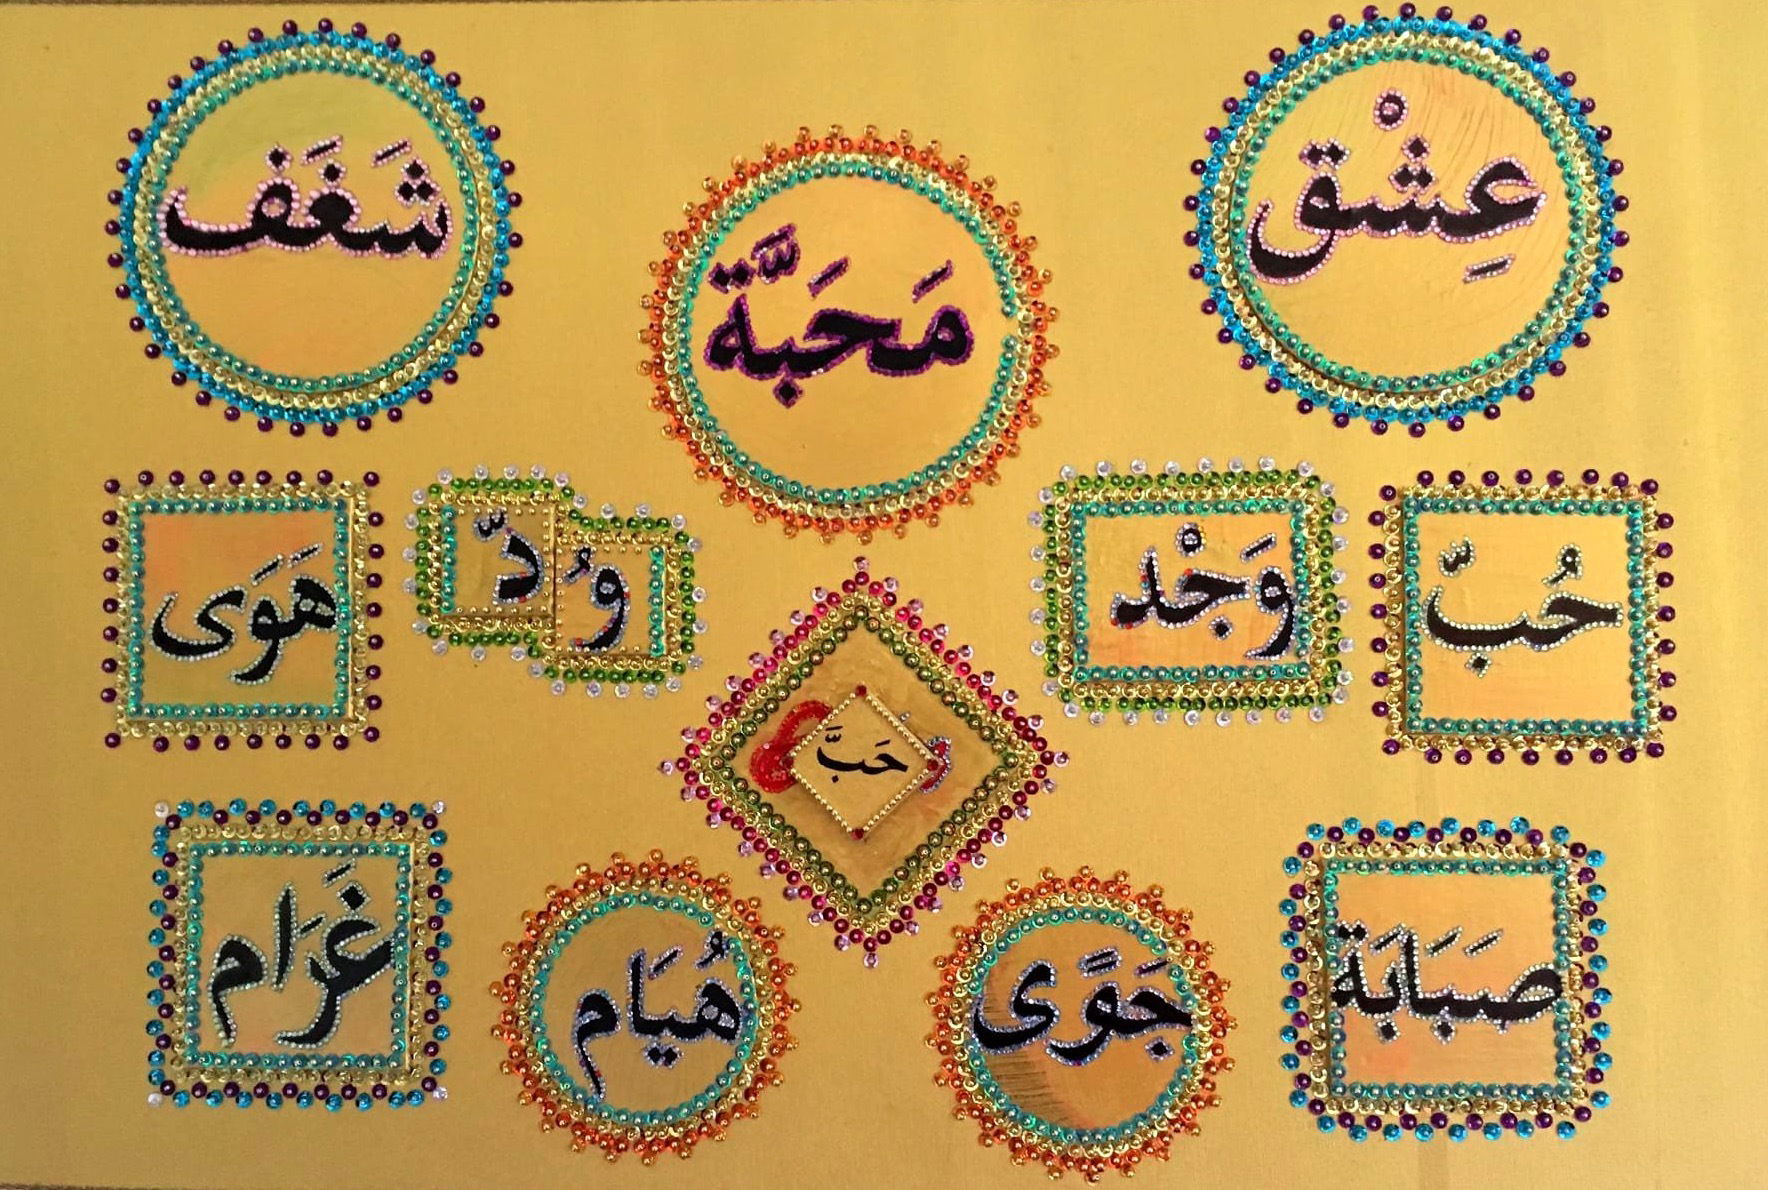 عِشْق
مَحَبَّة
شَغَفْ
حُبّ
وَجْد
وُدّ
هَوَى
حَبَّ
صَبَابَة
جَوًى
هُيَام
غَرَام